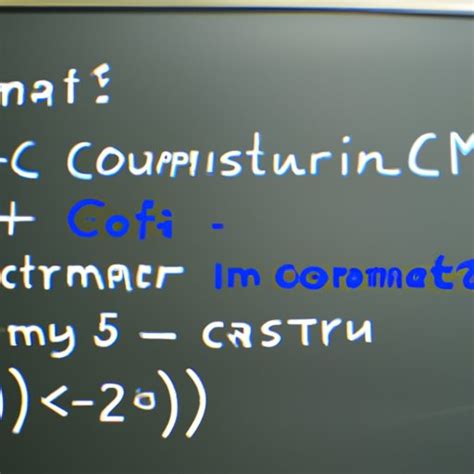 mat!
-C CouppisturinCM
+ Cofi -
ctrmpcr Im cooromnat2
my 5 – castru
))<-2o))